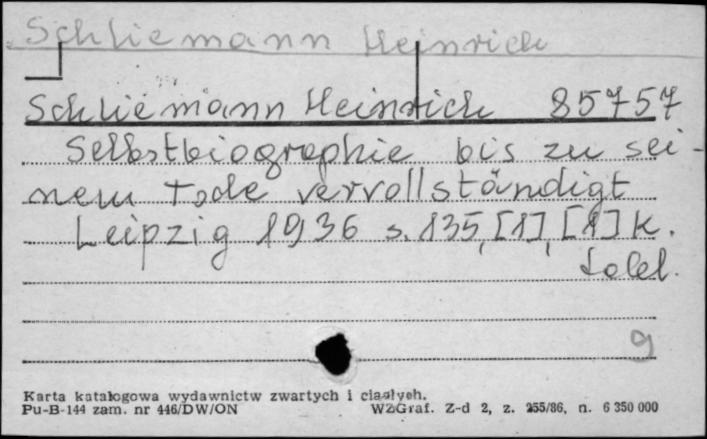 Schliemann Heinrich
Schliemann Heinrich 85757
Selbstbiographie bis zu sei-
nem Tode vervollständigt
Leipzig 1936 s. 135, [1], [1] k.
tabl.
9
Karta katalogowa wydawnictw zwartych i ciągłych.
Pu-B-144 zam. nr 446/DW/ON WZGraf. Z-d 2, z. 255/86, n. 6 350 000